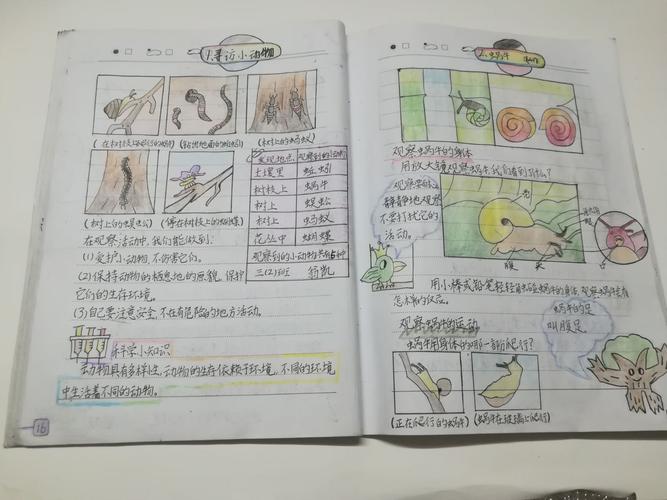 1.寻访小动物
(在树枝上爬行的蜗牛)
(钻出地面的蚯蚓)
(树上的蚂蚁)
(树上的蜈蚣)
(停在树枝上的蝴蝶)
发现地点 观察到的小动物
土壤里 蚯蚓
树枝上 蜗牛
树上 蜈蚣
树上 蚂蚁
花丛中 蝴蝶
观察到的小动物共有5种
三(2)班
在观察活动中,我们能做到:
(1)爱护小动物,不伤害它们。
(2)保持动物的栖息地的原貌,保护
它们的生存环境。
(3)自己要注意安全,不在有危险的地方活动。
科学小知识
动物具有多样性,动物的生存依赖于环境,不同的环境
中生活着不同的动物。
16
2.蜗牛
观察蜗牛的身体
用放大镜观察蜗牛,我们看到什么?
观察要求:
静静地观察
不要打扰它的
活动。
壳
腹 头
用小棒或铅笔轻轻触碰蜗牛的身体,观察蜗牛会有
怎样的反应。
蜗牛的足
叫腹足
观察蜗牛的运动
蜗牛用身体的哪一部分爬行?
(正在爬行的蜗牛)
(蜗牛在玻璃上爬行)